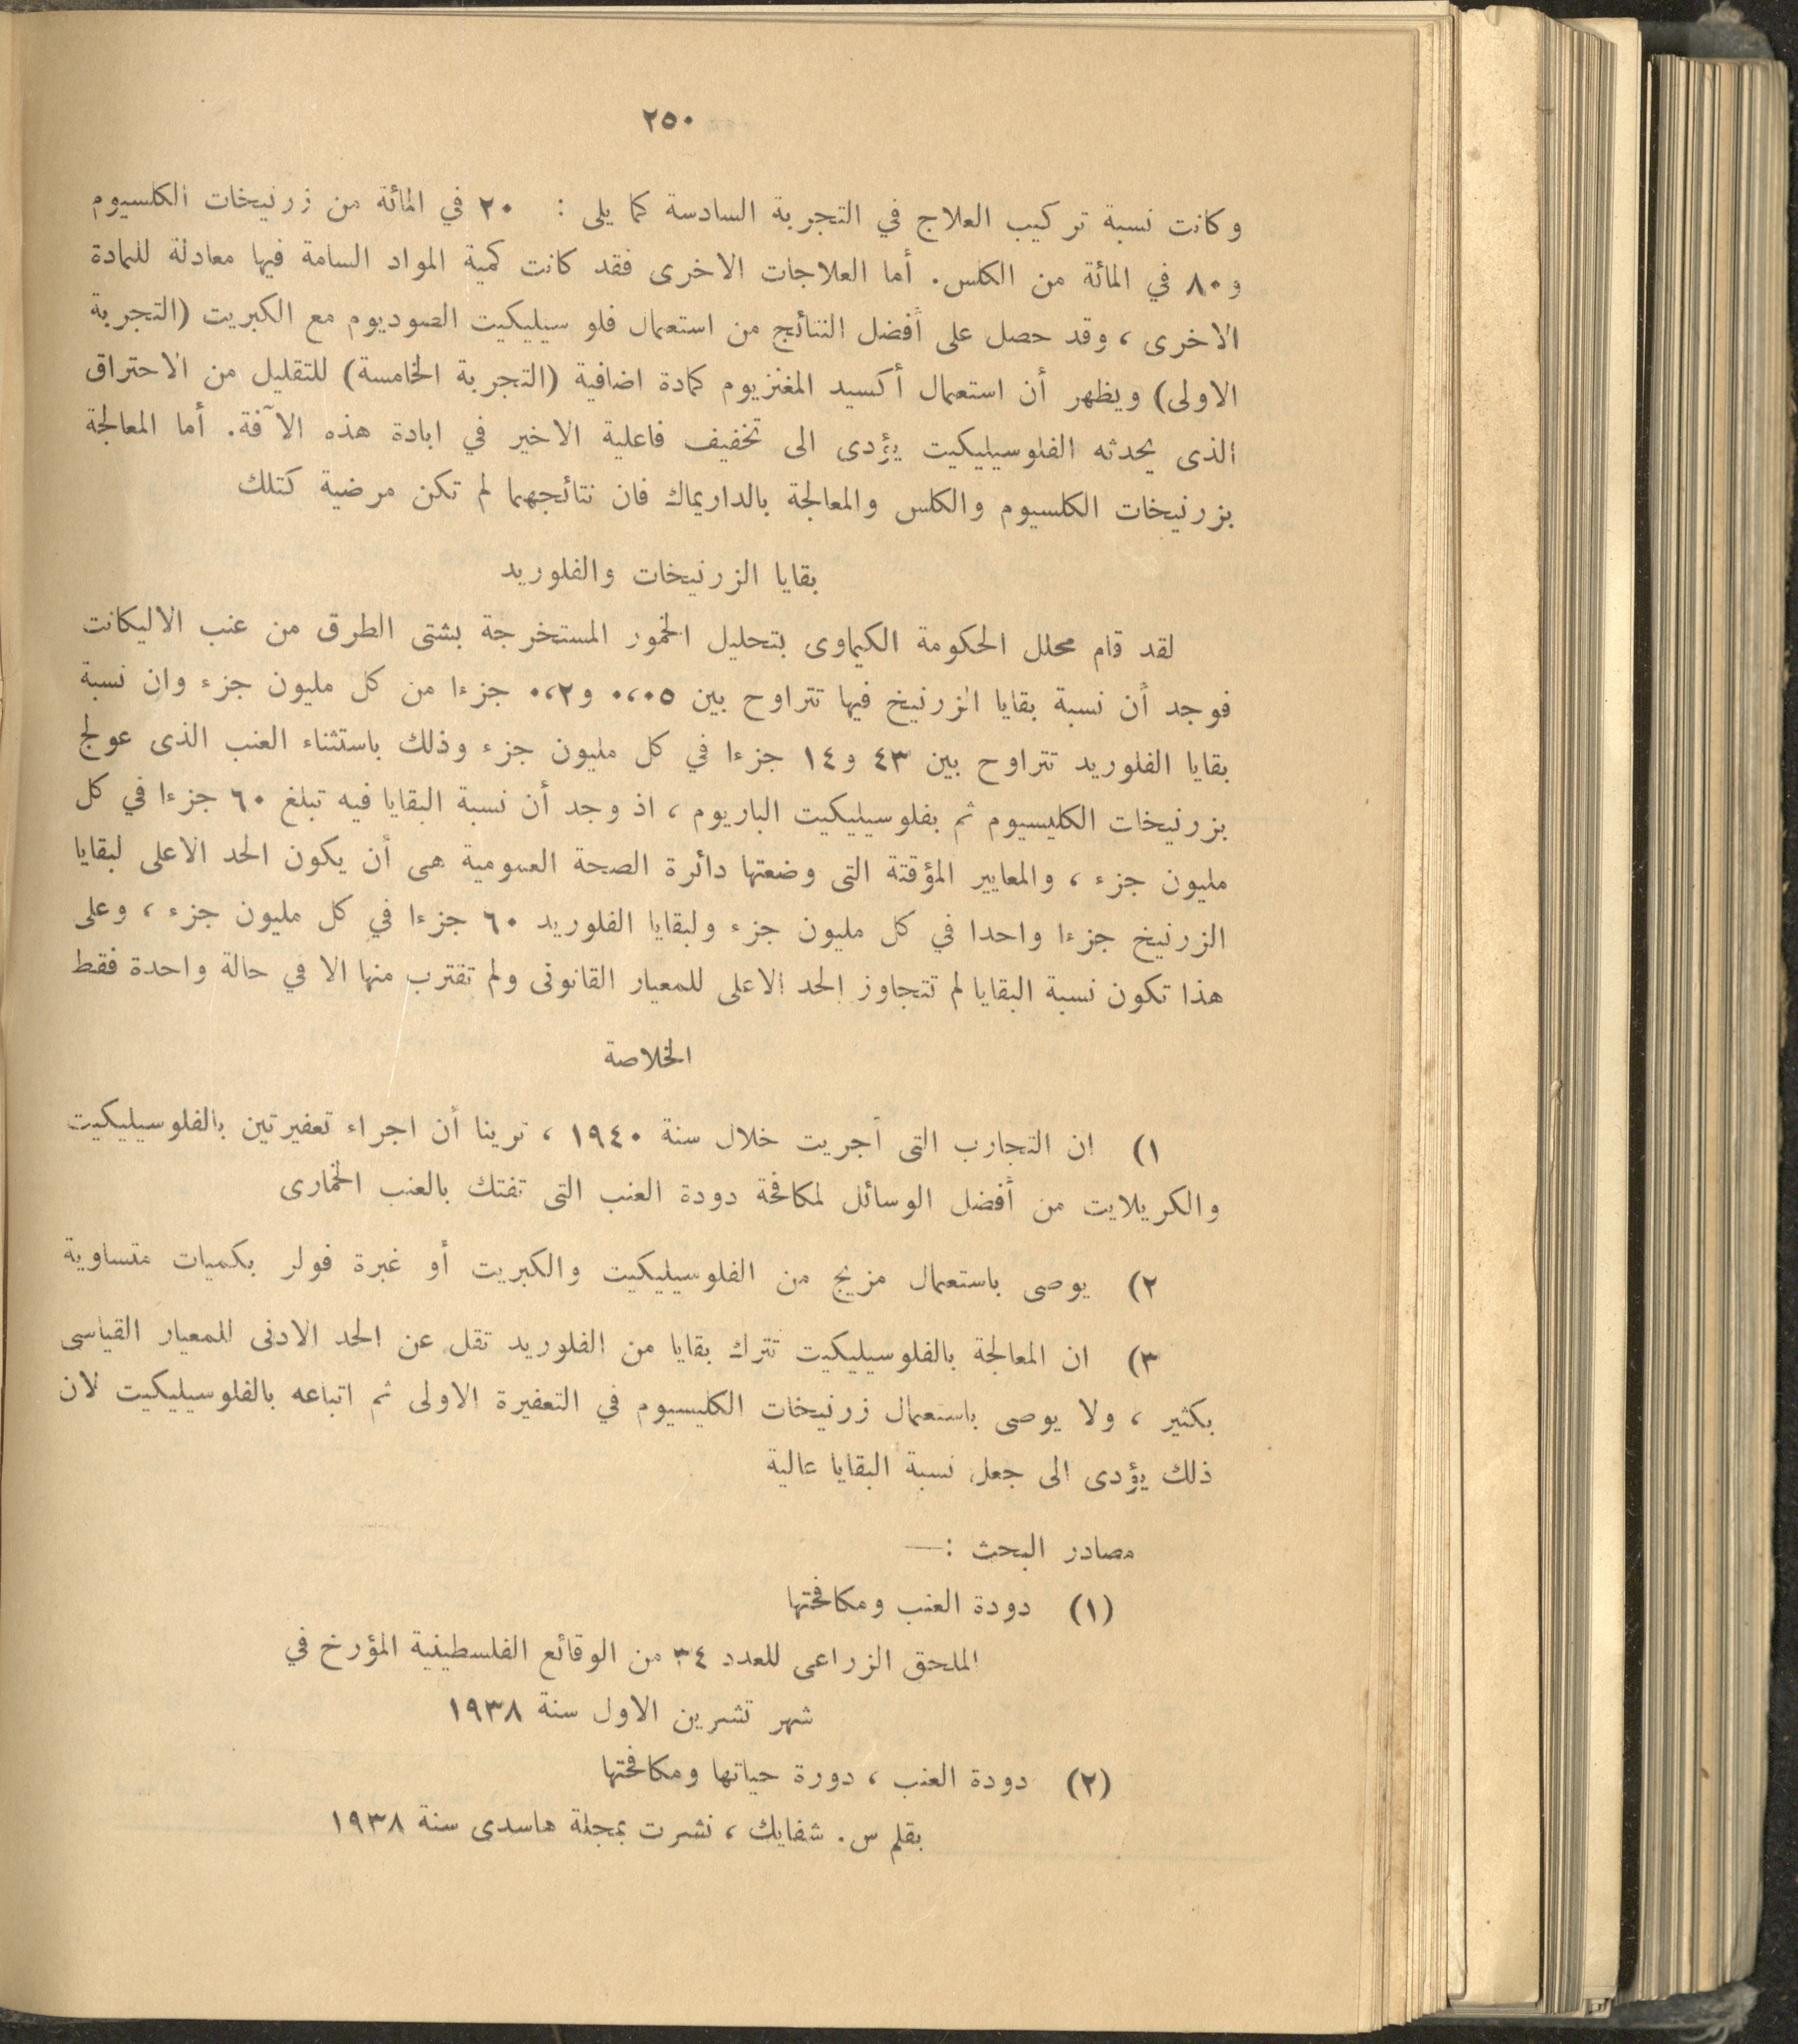 ٢٥٠
وكانت نسبة تركيب العلاج في التجربة السادسة كما يلى : ٢٠ في المائة من زرنيخات الكلسيوم
و٨٠ في المائة من الكلس. أما العلاجات الاخرى فقد كانت كمية المواد السامة فيها معادلة للمادة
الاخرى ، وقد حصل على أفضل النتائج من استعمال فلو سيليكيت الصوديوم مع الكبريت (التجربة
الاولى) ويظهر أن استعمال أكسيد المغنزيوم كمادة اضافية (التجربة الخامسة) للتقليل من الاحتراق
الذى يحدثه الفلوسيليكيت يؤدى الى تخفيف فاعلية الاخير في ابادة هذه الآفة. أما المعالجة
بزرنيخات الكلسيوم والكلس والمعالجة بالداريماك فان نتائجهما لم تكن مرضية كتلك
بقايا الزرنيخات والفلوريد
لقد قام محلل الحكومة الكيماوى بتحليل الخمور المستخرجة بشتى الطرق من عنب الاليكانت
فوجد أن نسبة بقايا الزرنيخ فيها تتراوح بين ٠،٠٥ و٠،٢ جزءا من كل مليون جزء وان نسبة
بقايا الفلوريد تتراوح بين ٤٣ و١٤ جزءا في كل مليون جزء وذلك باستثناء العنب الذى عولج
بزرنيخات الكليسيوم ثم بفلوسيليكيت الباريوم ، اذ وجد أن نسبة البقايا فيه تبلغ ٦٠ جزءا في كل
مليون جزء ، والمعايير المؤقتة التى وضعتها دائرة الصحة العمومية هى أن يكون الحد الاعلى لبقايا
الزرنيخ جزءا واحدا في كل مليون جزء ولبقايا الفلوريد ٦٠ جزءا في كل مليون جزء ، وعلى
هذا تكون نسبة البقايا لم تتجاوز الحد الاعلى للمعيار القانونى ولم تقترب منها الا في حالة واحدة فقط
الخلاصة
١) ان التجارب التى أجريت خلال سنة ١٩٤٠ ، ترينا أن اجراء تعفيرتين بالفلوسيليكيت
والكريلايت من أفضل الوسائل لمكافحة دودة العنب التى تفتك بالعنب الخمارى
٢) يوصى باستعمال مزيج من الفلوسيليكيت والكبريت أو غبرة فولر بكميات متساوية
٣) ان المعالجة بالفلوسيليكيت تترك بقايا من الفلوريد تقل عن الحد الادنى للمعيار القياسى
بكثير ، ولا يوصى باستعمال زرنيخات الكليسيوم في التعفيرة الاولى ثم اتباعه بالفلوسيليكيت لان
ذلك يؤدى الى جعل نسبة البقايا عالية
مصادر البحث :—
(١) دودة العنب ومكافحتها
الملحق الزراعى للعدد ٣٤ من الوقائع الفلسطينية المؤرخ في
شهر تشرين الاول سنة ١٩٣٨
(٢) دودة العنب ، دورة حياتها ومكافحتها
بقلم س. شفايك ، نشرت بمجلة هاسدى سنة ١٩٣٨